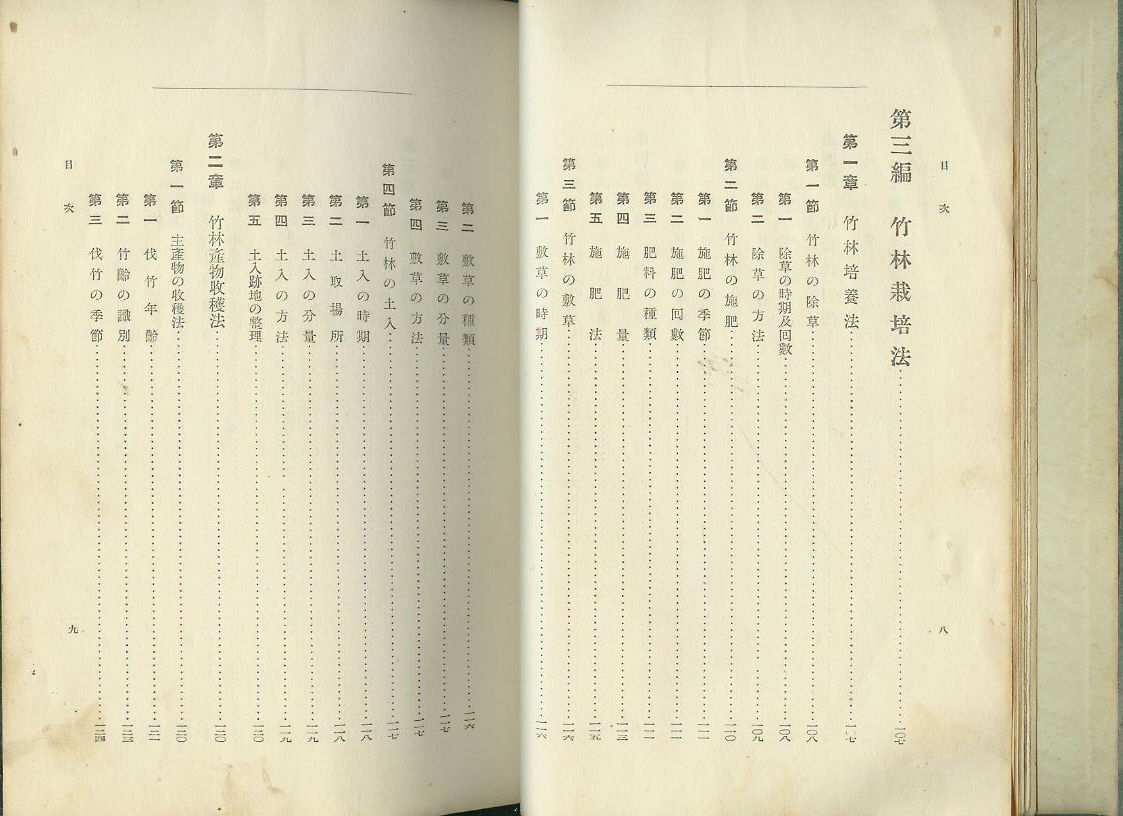 目次
第三編 竹林栽培法…一〇七
第一章 竹林培養法…一〇七
第一節 竹林の除草…一〇八
第一 除草の時期及回數…一〇八
第二 除草の方法…一〇九
第二節 竹林の施肥…一一〇
第一 施肥の季節…一一一
第二 施肥の回數…一一一
第三 肥料の種類…一一一
第四 施肥量…一一三
第五 施肥法…一一五
第三節 竹林の敷草…一一六
第一 敷草の時期…一一六
八
目次
第二 敷草の種類…一一六
第三 敷草の分量…一一七
第四 敷草の方法…一一七
第四節 竹林の土入…一一七
第一 土入の時期…一一八
第二 土取場所…一一八
第三 土入の分量…一一九
第四 土入の方法…一一九
第五 土入跡地の整理…一二〇
第二章 竹林產物收穫法…一二〇
第一節 主產物の收穫法…一二〇
第一 伐竹年齡…一二一
第二 竹齡の識別…一二三
第三 伐竹の季節…一二四
九